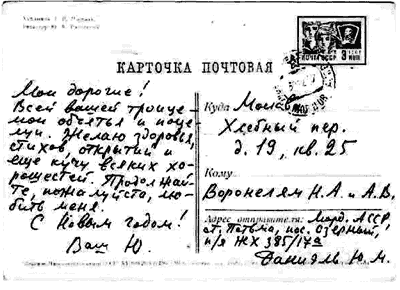 КАРТОЧКА ПОЧТОВАЯ
ПОЧТА СССР
3 КОП
Мои дорогие!
Всей вашей троице –
мои объятья и поце-
луи. Желаю здоровья,
стихов, открытий и
еще кучу всяких хо-
рошестей. Продолжай-
те, пожалуйста, лю-
бить меня.
С Новым годом!
Ваш Ю.
Куда Москва
Хлебный пер.
д. 19, кв. 25
Кому
Воронелям Н.А. и А.В.
Адрес отправителя: Морд. АССР
ст. Потьма, пос. Озерный,
п/я ЖХ 385/17а
Даниэль Ю. М.